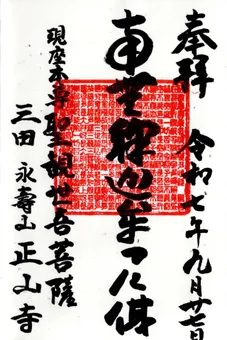 奉拝
令和七年九月廿七日
南無釋迦牟尼佛
現座本尊聖観世音菩薩
三田 永壽山 正山寺